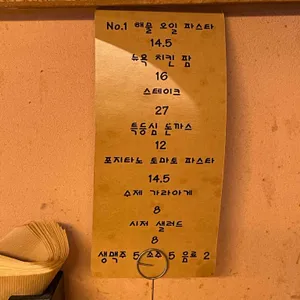 No.1 해물 오일 파스타
14.5
뉴욕 치킨 팜
16
스테이크
27
특등심 돈까스
12
포지타노 토마토 파스타
14.5
수제 가라아게
8
시저 샐러드
8
생맥주 5 소주 5 음료 2